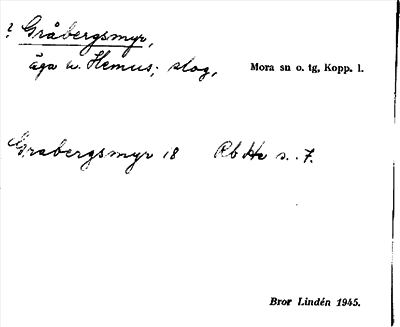 ? Gråbergsmyr,
äga u. Hemus; slog,
Mora sn o. tg, Kopp. l.
Grabergsmyr 18 Rb He s. 7.
Bror Lindén 1945.